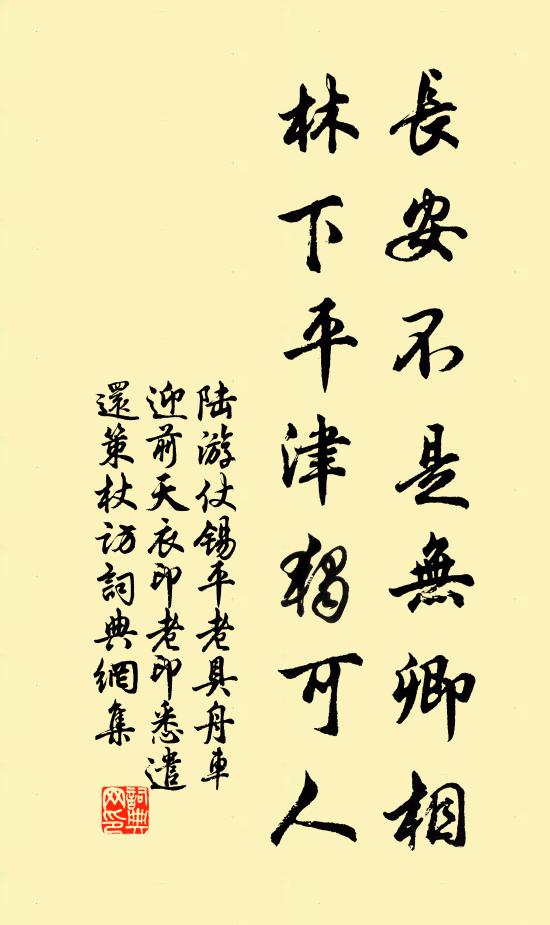 長安不是無卿相
林下平津獨可人
陆游仗锡平老具舟車
迎前天衣印老印悉遣
還策杖访詞典網集
詞典
网印